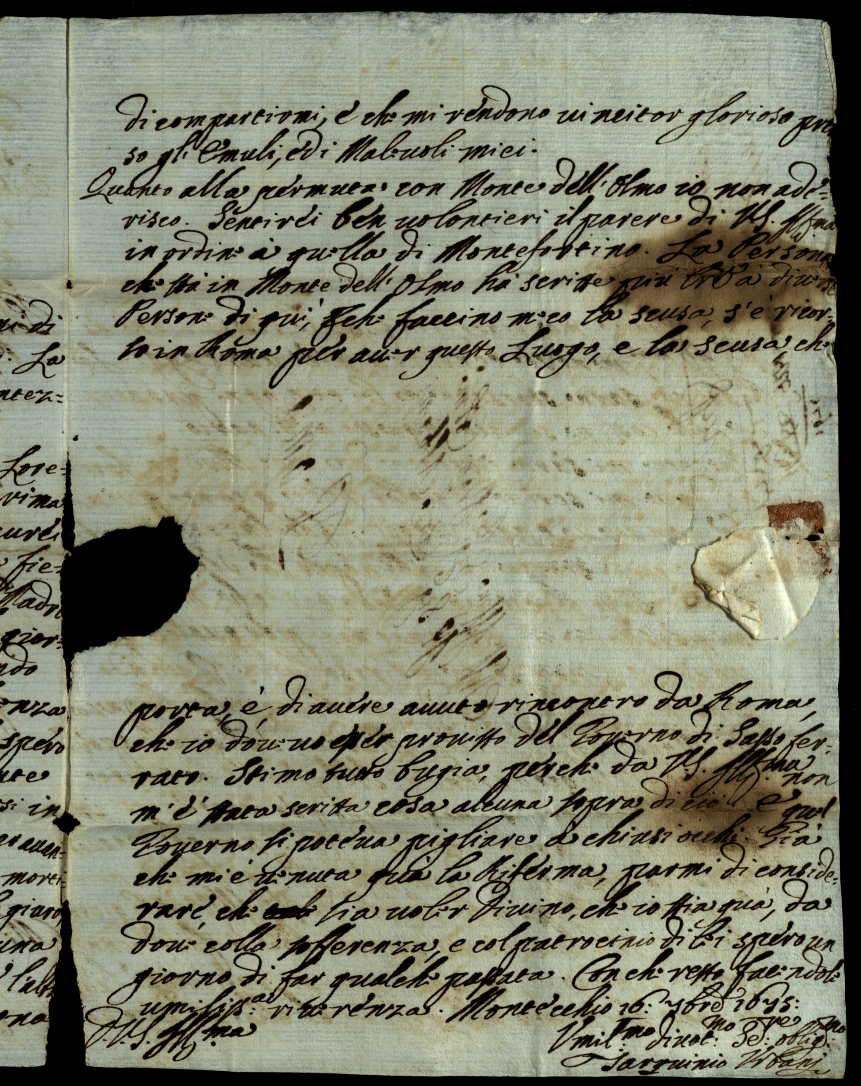 di compartirmi, è che mi rendono uincitor glorioso pre
so gl'Emuli, ed i Maleuoli miei.
Quanto alla permuta con Monte dell'Olmo io non ade-
risco. Sentirei ben uolontieri il parere di V.S. Illma
in ordine à quella di Montefortino. La Persona
che stà in Monte dell'Olmo hà scritte più à diuerse
Persone di quì, che faccino meco la scusa, s'è ricor-
so in Roma per auer questo Luogo, e la scusa, che
porta, è di auere auuto rincontro da Roma,
che io doueuo esser prouisto del Gouerno di Sasso fer-
rato. Stimo tutto bugia, perche da V.S. Illma non
m'è stata scritta cosa alcuna sopra di ciò. E quel
Gouerno si poteua pigliare a chiusi occhi. Già
che mi è uenuta quà la Riferma, parmi di conside-
rare, che sia uoler Diuino, che io stia quà, da
doue colla sofferenza, e col patrocinio di lei spero un
giorno di far qualche passata. Con che resto facendole
umiliss.a riuerenza. Montecchio 16: 1695:
D.V.S. Illma
Vmil.mo diuot.mo Se.re oblig.mo
Tarquinio Vrbani
ni di
La
ntez=
Lore=
rima
fie=
Madr
gior=
ndo
enza
spero
nte
si in
morti
una